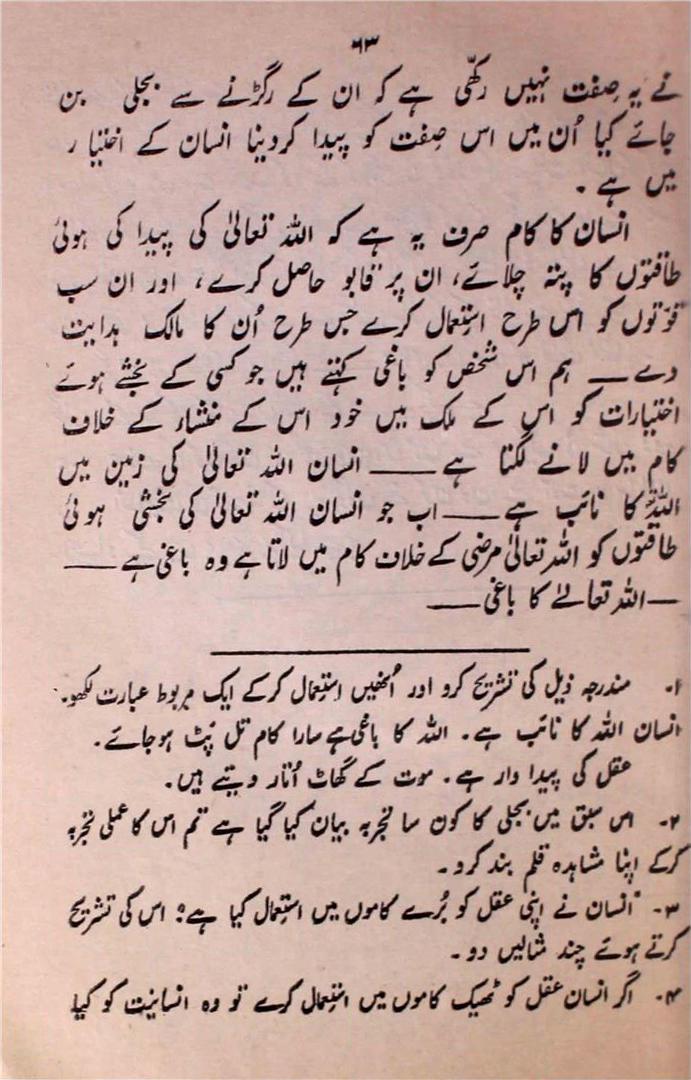 ۶۳
نے یہ صِفت نہیں رکھّی ہے کہ ان کے رگڑنے سے بجلی بن
جائے کیا اُن میں اس صِفت کو پیدا کردینا انسان کے اختیار
میں ہے ۔
انسان کا کام صرف یہ ہے کہ اللہ تعالیٰ کی پیدا کی ہوئی
طاقتوں کا پتہ چلائے، ان پر قابو حاصل کرے، اور ان سب
قوّتوں کو اس طرح استعمال کرے جس طرح اُن کا مالک ہدایت
دے ـــ ہم اس شخص کو باغی کہتے ہیں جو کسی کے بخشے ہوئے
اختیارات کو اس کے ملک میں خود اس کے منشار کے خلاف
کام میں لانے لگتا ہے ـــ انسان اللہ تعالیٰ کی زمین میں
اللہ کا نائب ہے ـــ اب جو انسان اللہ تعالیٰ کی بخشی ہوئی
طاقتوں کو اللہ تعالیٰ مرضی کے خلاف کام میں لاتا ہے وہ باغی ہے ـــ
ـــ اللہ تعالےٰ کا باغی ـــ
۱۔ مندرجہ ذیل کی تشریح کرو اور اُنھیں استعمال کرکے ایک مربوط عبارت لکھو۔
انسان اللہ کا نائب ہے۔ اللہ کا باغی ہے سارا کام تل پٹ ہوجائے۔
عقل کی پیدا وار ہے۔ موت کے گھاٹ اُتار دیتے ہیں۔
۲۔ اس سبق میں بجلی کا کون سا تجربہ بیان کیا گیا ہے تم اس کا عملی تجربہ
کرکے اپنا مشاہدہ قلم بند کرو۔
۳۔ انسان نے اپنی عقل کو بُرے کاموں میں استعمال کیا ہے؟ اس کی تشریح
کرتے ہوئے چند مثالیں دو۔
۴۔ اگر انسان عقل کو ٹھیک کاموں میں استعمال کرے تو وہ انسانیت کو کیا